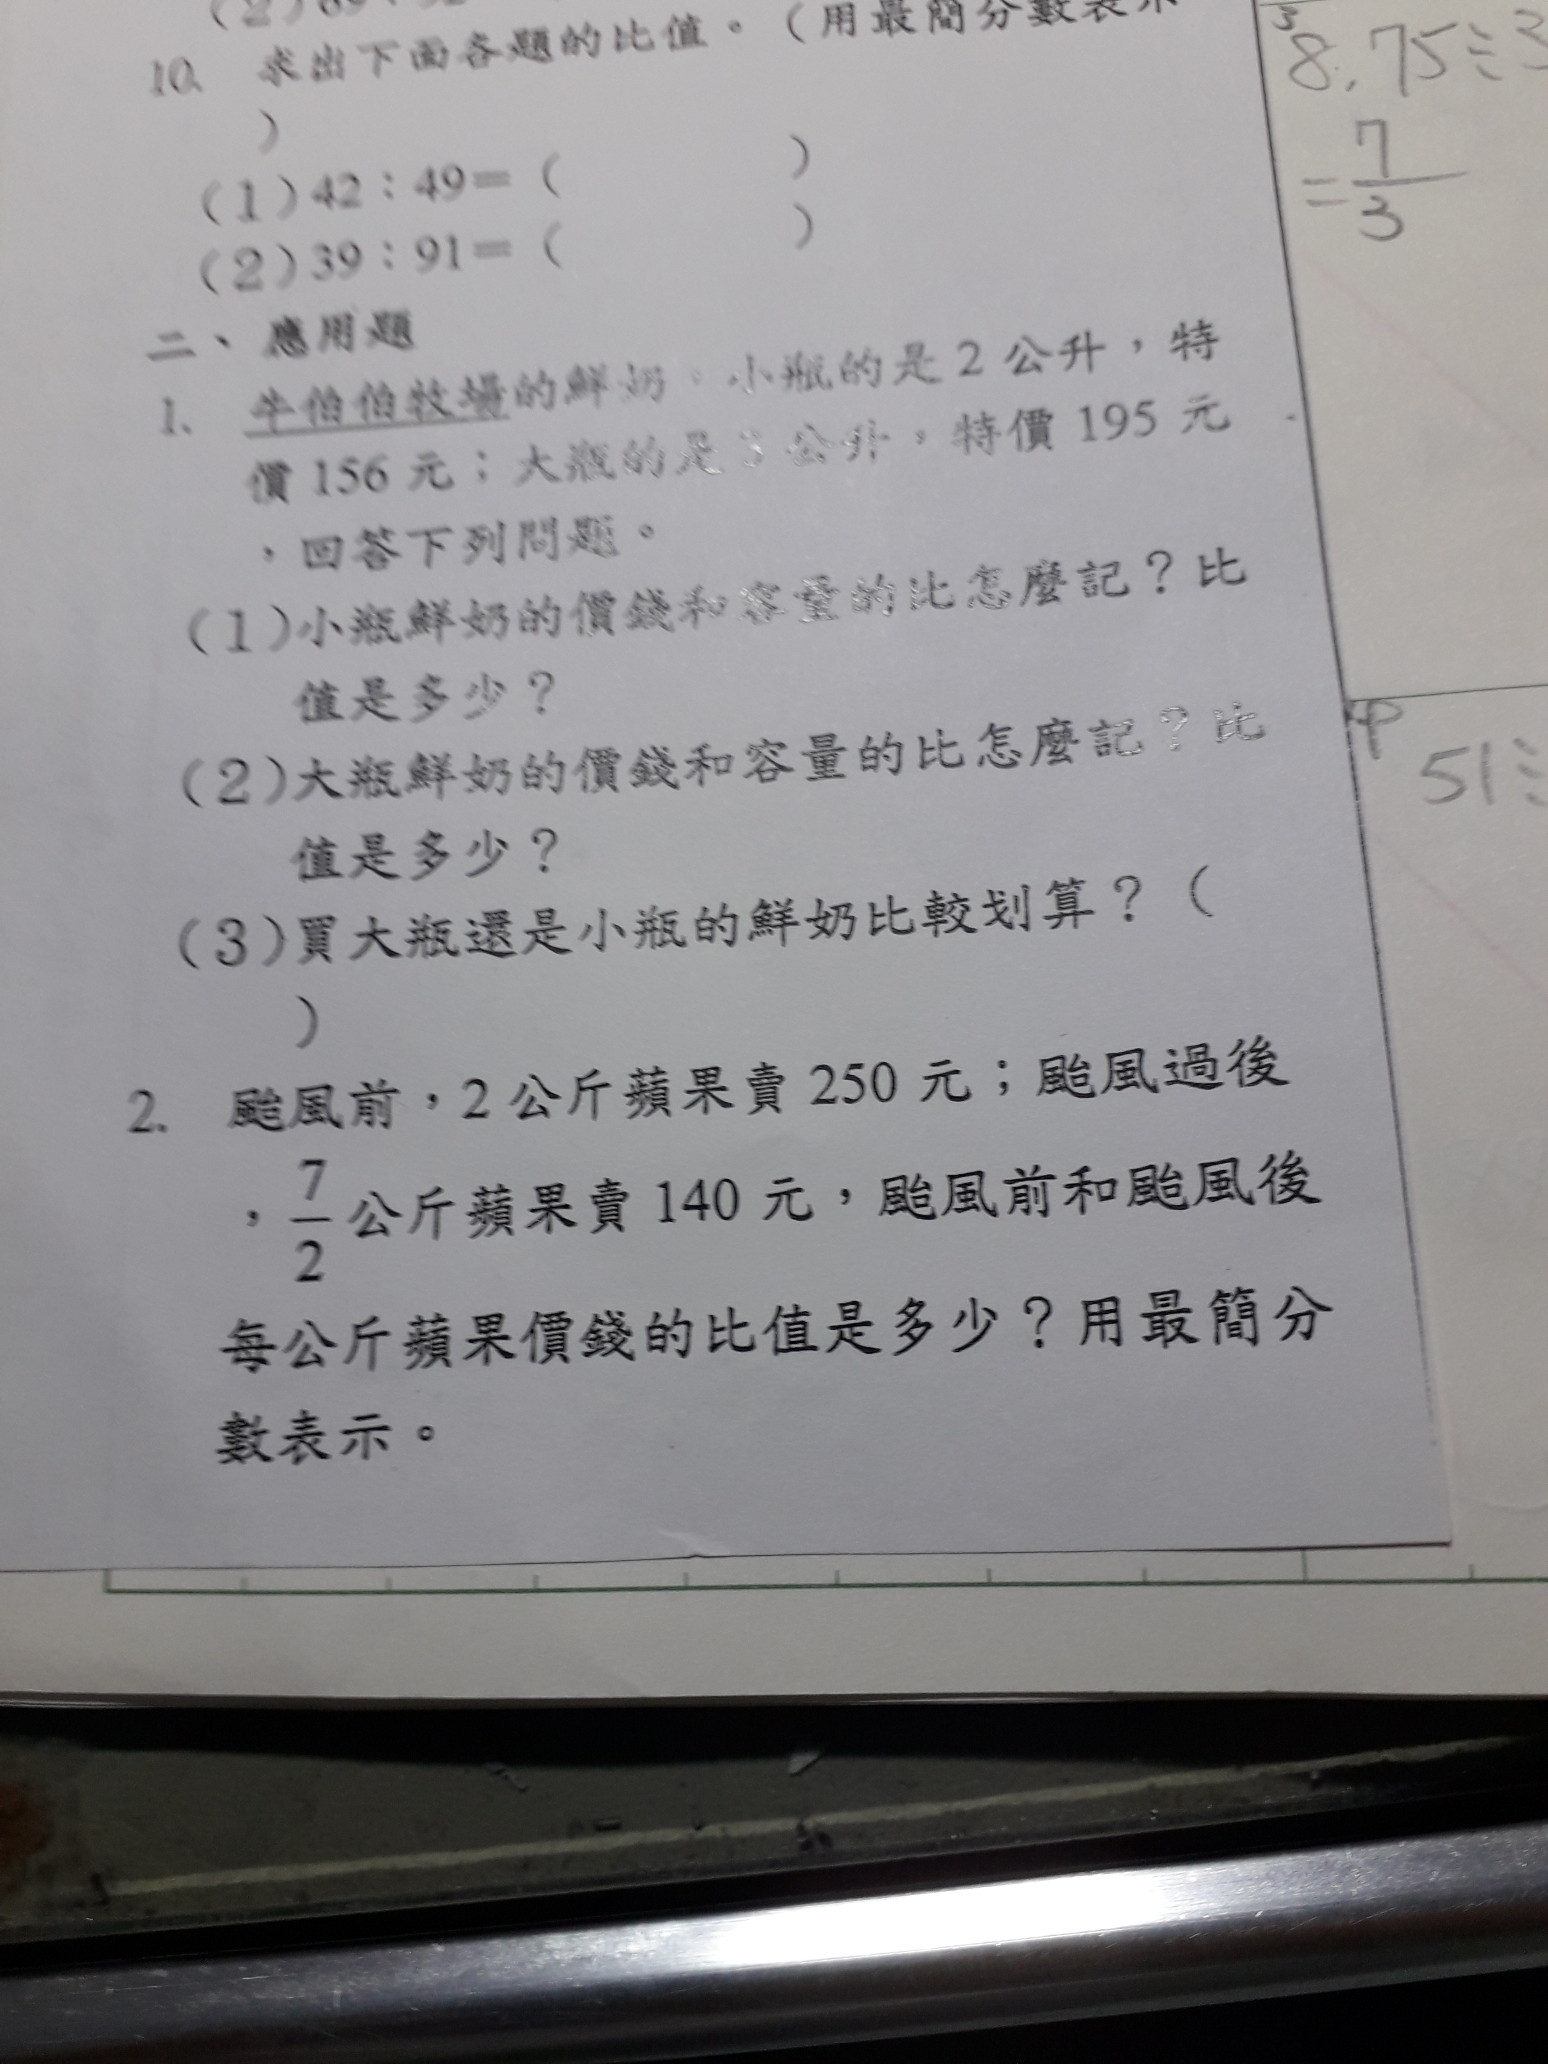 10. 求出下面各題的比值。(用最簡分數表示
)
(1)42：49=(          )
(2)39：91=(          )
二、應用題
1. 牛伯伯牧場的鮮奶，小瓶的是2公升，特
價156元；大瓶的是3公升，特價195元
，回答下列問題。
(1)小瓶鮮奶的價錢和容量的比怎麼記？比
值是多少？
(2)大瓶鮮奶的價錢和容量的比怎麼記？比
值是多少？
(3)買大瓶還是小瓶的鮮奶比較划算？(
)
2. 颱風前，2公斤蘋果賣250元；颱風過後
，7/2公斤蘋果賣140元，颱風前和颱風後
每公斤蘋果價錢的比值是多少？用最簡分
數表示。
3 8.75÷3
=7/3
51÷